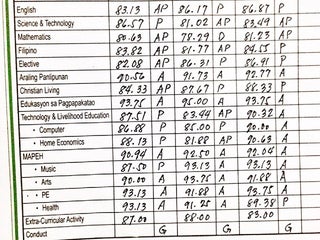 English 83.13 AP 86.17 P 86.87 P
Science & Technology 86.57 P 81.02 AP 83.49 AP
Mathematics 80.63 AP 78.29 D 81.23 AP
Filipino 83.82 AP 81.77 AP 84.55 P
Elective 82.08 AP 86.31 P 86.91 P
Araling Panlipunan 90.56 A 91.73 A 92.77 A
Christian Living 84.33 AP 87.67 P 88.33 P
Edukasyon sa Pagpapakatao 93.75 A 95.00 A 93.75 A
Technology & Livelihood Education 87.51 P 83.44 AP 90.32 A
• Computer 86.88 P 85.00 P 90.00 A
• Home Economics 88.13 P 81.88 AP 90.63 A
MAPEH 90.94 A 92.50 A 92.04 A
• Music 87.50 P 93.13 A 93.13 A
• Arts 90.00 A 93.75 A 91.88 A
• PE 93.13 A 91.88 A 93.75 A
• Health 93.13 A 91.25 A 89.38 P
Extra-Curricular Activity 87.00 88.00 83.00
Conduct G G G